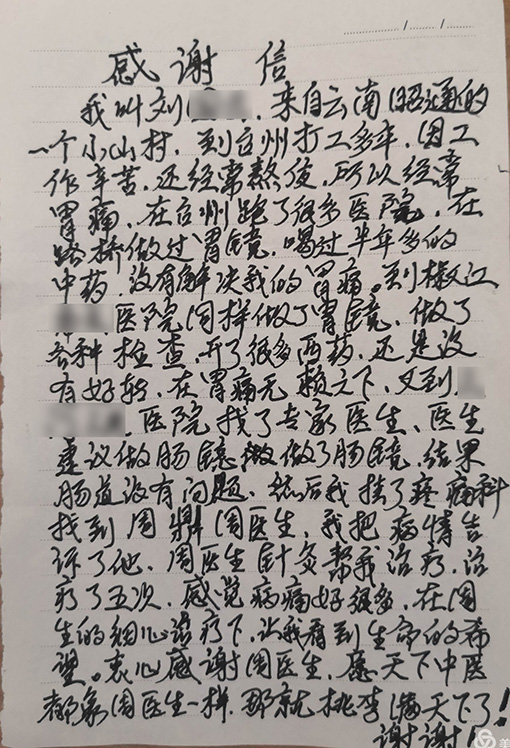 感谢信
我叫刘 来自云南昭通的
一个小山村，到台州打工多年，因工
作辛苦，还经常熬夜，所以经常
胃痛，在台州跑了很多医院，在
路桥做过胃镜，喝过半年多的
中药，没有解决我的胃痛。到椒江
医院同样做了胃镜，做了
各种检查，开了很多西药，还是没
有好转，在胃痛无赖之下，又到
医院找了专家医生、医生
建议做肠镜，做了肠镜，结果
肠道没有问题、然后我挂了疼痛科
找到周鼎周医生，我把病情告
诉了他，周医生针灸帮我治疗，治
疗了五次，感觉病痛好很多，在周
生的细心治疗下，让我看到生命的希
望。衷心感谢周医生，愿天下中医
都象周医生一样，那就桃李满天下了！
谢谢！